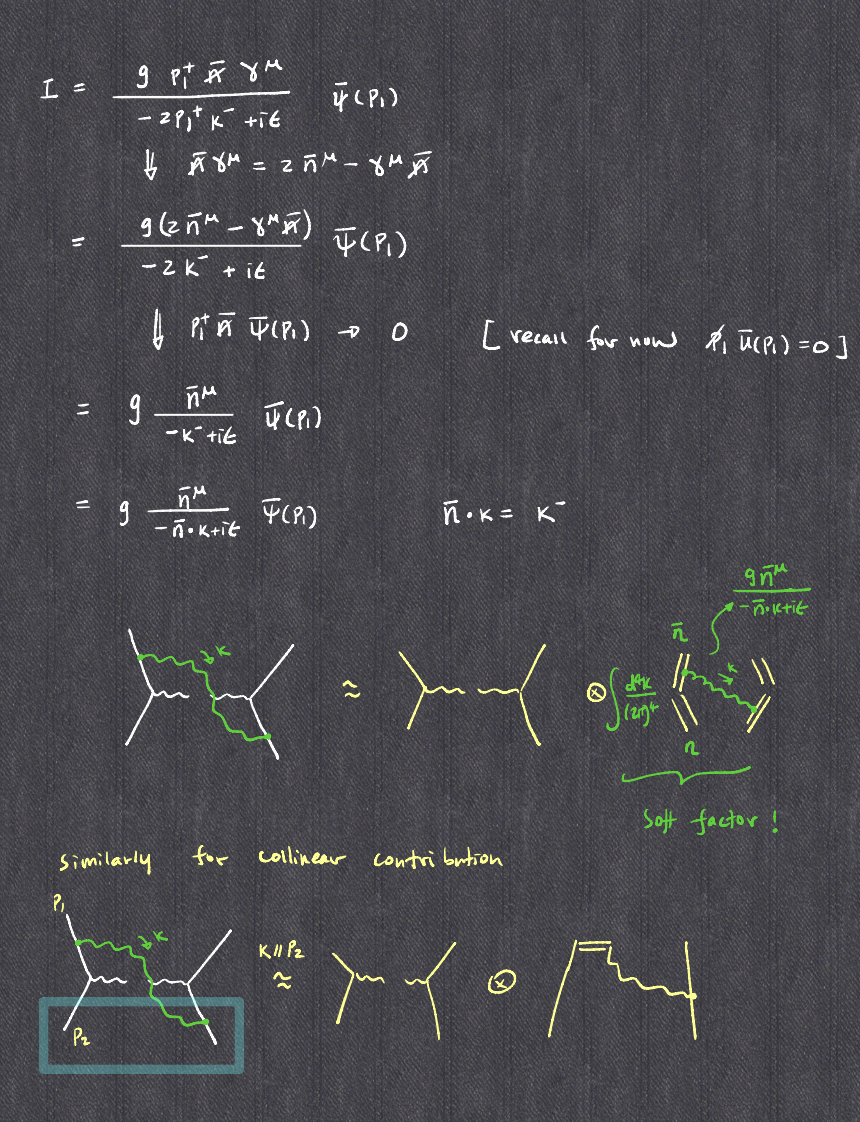 I = g p₁⁺ n̸̄ γ^μ / (-2p₁⁺ k⁻ + iε) ψ̄(p₁)
⇓ n̸̄ γ^μ = 2 n̄^μ - γ^μ n̸̄
= g(2 n̄^μ - γ^μ n̸̄) / (-2 k⁻ + iε) ψ̄(p₁)
⇓ p₁⁺ n̸̄ ψ̄(p₁) → 0 [ recall for now p̸₁ ū(p₁) = 0 ]
= g n̄^μ / (-k⁻ + iε) ψ̄(p₁)
= g n̄^μ / (-n̄·k + iε) ψ̄(p₁) n̄·k = k⁻
g n̄^μ / (-n̄·k + iε)
n̄
k ≈ ⊗ ∫ d⁴k / (2π)⁴ k
n
soft factor !
similarly for collinear contribution
p₁
k k∥p₂ ≈ ⊗
p₂